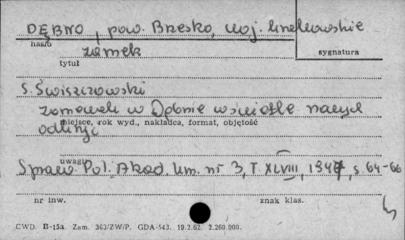 DĘBNO, pow. Brzesko, woj. krakowskie
hasło
zamek
sygnatura
tytuł
S. Świszczowski
zameczek w Dębnie w świetle nowych
miejsce, rok wyd., nakładca, format, objętość
odkryć
uwagi
Spraw. Pol. Akad. Um. nr 3, T. XLVIII, 1947, s. 64-66
nr inw.
znak klas.
CWD. B-15a. Zam. 363/ZW/P. GDA-543. 19.2.62. 2.260.000.